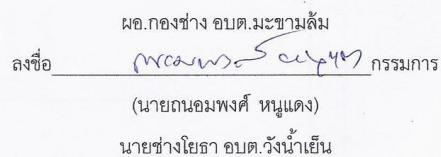 ผอ.กองช่าง อบต.มะขามล้ม
ลงชื่อ กรรมการ
(นายถนอมพงศ์ หนูแดง)
นายช่างโยธา อบต.วังน้ำเย็น